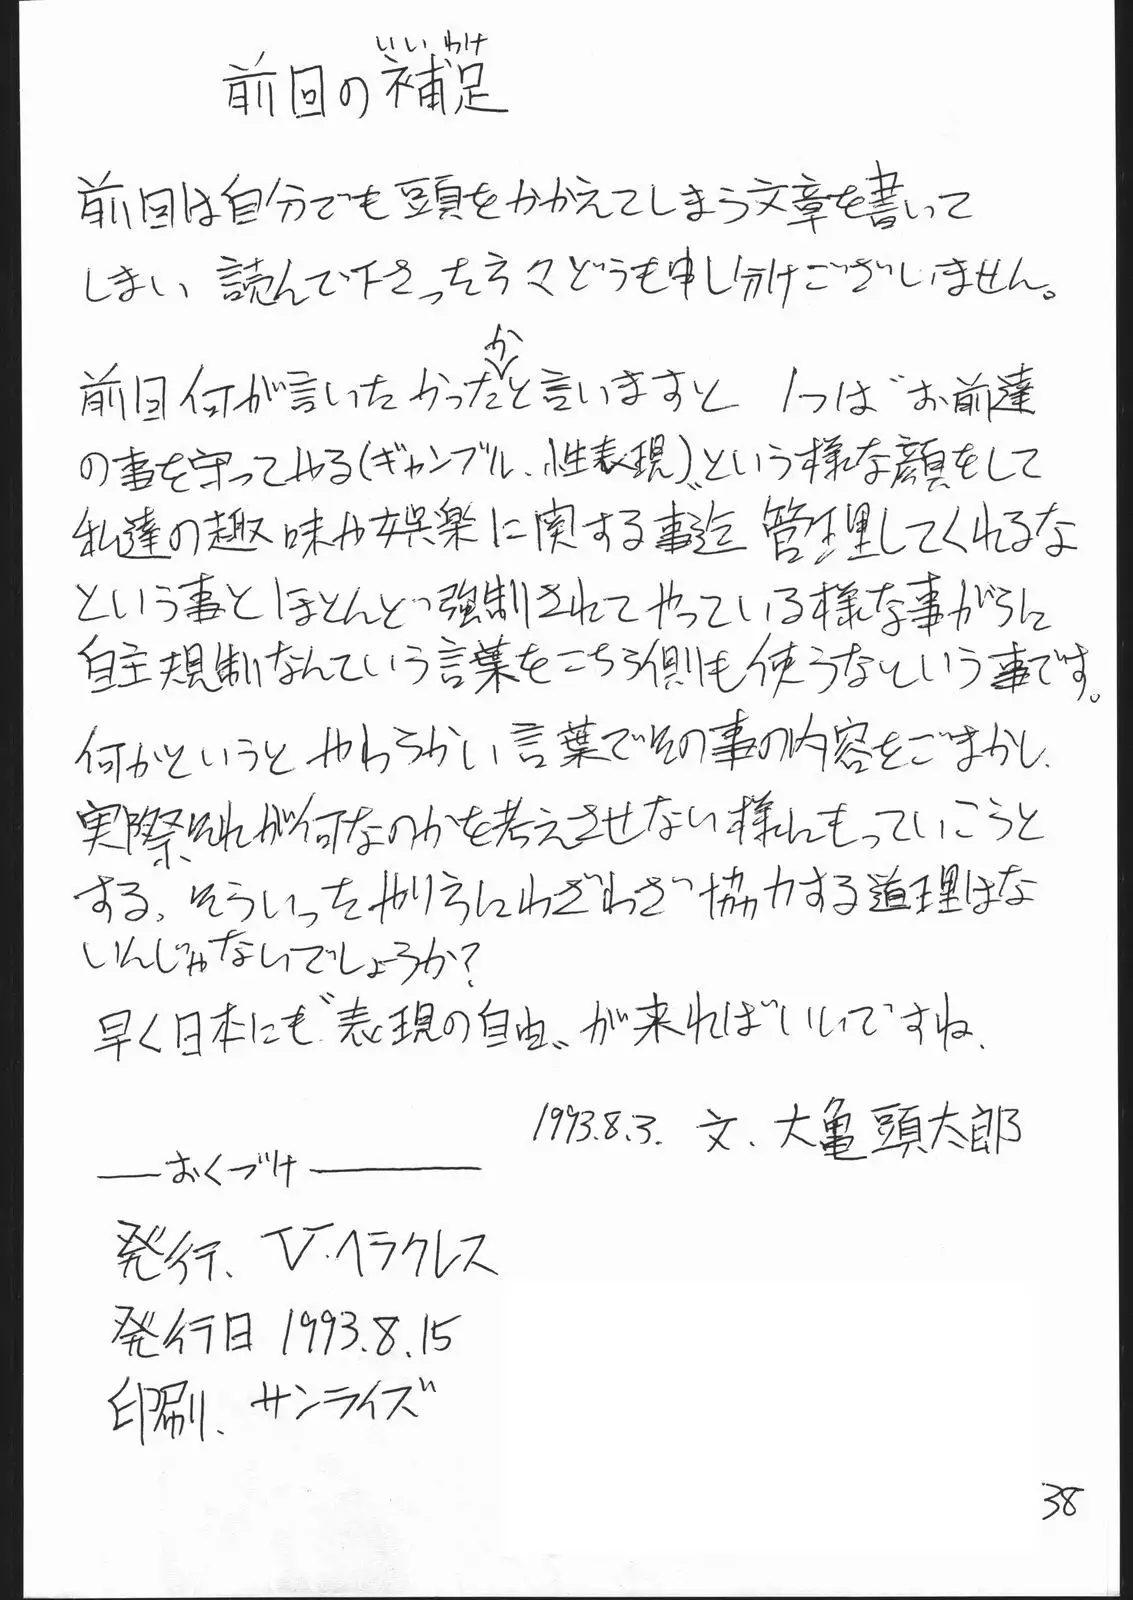 いいわけ
前回の補足
前回は自分でも頭をかかえてしまう文章を書いて
しまい 読んで下さった方々どうも申し分けございません。
前回何が言いたかったかと言いますと 1つは〝お前達
の事を守ってやる(ギャンブル、性表現)〟という様な顔をして
私達の趣味や娯楽に関する事迄管理してくれるな
という事とほとんど強制されてやっている様な事がらに
自主規制なんていう言葉をこちら側も使うなという事です。
何かというとやわらかい言葉でその事の内容をごまかし、
実際それが何なのかを考えさせない様にもっていこうと
する、そういったやり方にわざわざ協力する道理はな
いんじゃないでしょうか?
早く日本にも〝表現の自由〟が来ればいいですね、
1993.8.3. 文、大亀頭太郎
おくづけ
発行、V・ヘラクレス
発行日 1993.8.15
印刷、サンライズ
38